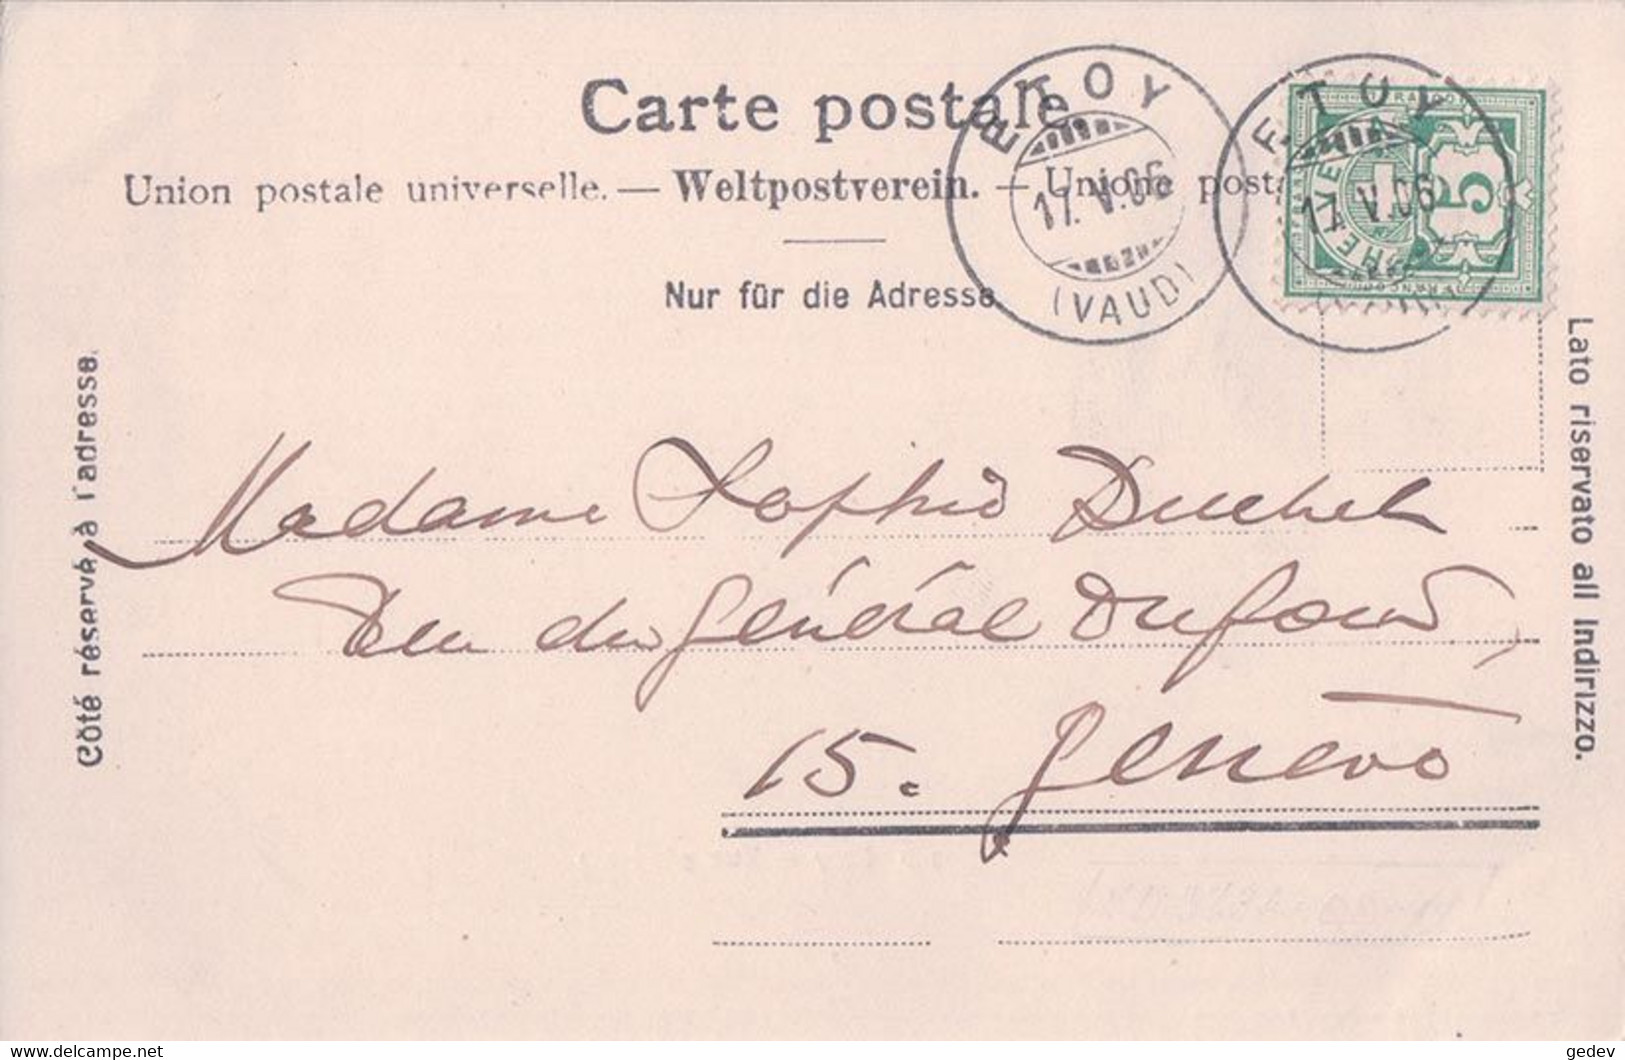 Carte postale.
Union postale universelle. — Weltpostverein. — Unione posta
Nur für die Adresse.
ETOY
17.V.06
(VAUD)
ETOY
17.V.06
HELVETIA
FRANCO
5
Côté réservé à l'adresse.
Lato riservato all Indirizzo.
Madame Sophie Duchet
Rue du Général Dufour,
15. Genève
delcampe.net
gedev